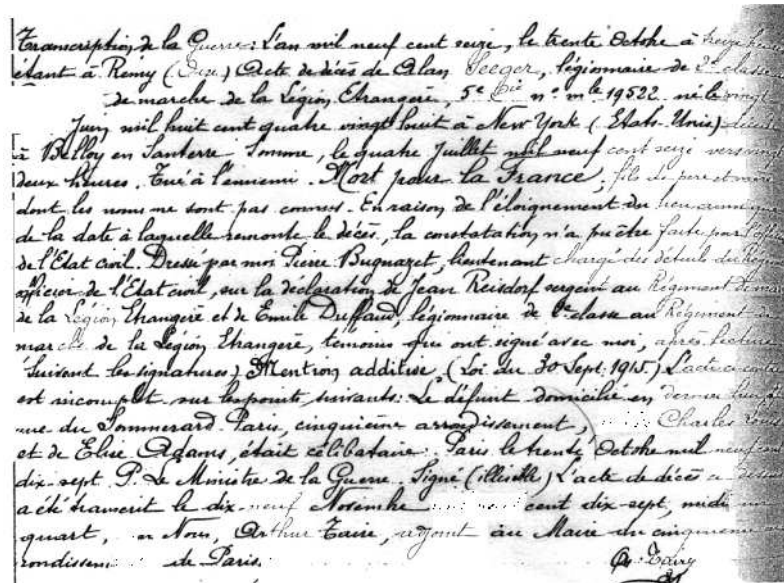 Transcription de la Guerre: L'an mil neuf cent seize, le trente Octobre à treize heures
étant à Rémy (Oise) Acte de décès de Alan Seeger, légionnaire de 2e classe
de marche de la Légion Etrangère, 5e Cie n° mle 19522 né le vingt
Juin mil huit cent quatre vingt huit à New York (Etats-Unis)
à Belloy en Santerre Somme, le quatre Juillet mil neuf cent seize vers vingt
deux heures. Tué à l'ennemi. Mort pour la France, fils de père et mère
dont les noms ne sont pas connus. En raison de l'éloignement du lieu ainsi que
de la date à laquelle remonte le décès, la constatation n'a pu être faite par l'
de l'Etat civil. Dressé par moi Pierre Bugnazet, lieutenant chargé des détails du
officier de l'Etat civil, sur la déclaration de Jean Reisdorf sergent au Régiment de
de la Légion Etrangère et de Emile Duffaud, légionnaire de 2e classe au Régiment de
marche de la Légion Etrangère, témoins qui ont signé avec moi, après lecture
(Suivent les signatures) Mention additive (Loi du 30 Sept. 1915) L'acte
est incomplet sur les points suivants: Le défunt domicilié en dernier lieu
rue du Sommerard Paris, cinquième arrondissement, Charles
et de Elise Adams, était célibataire. Paris le trente Octobre mil neuf cent
dix-sept P. Le Ministre de la Guerre. Signé (illisible) L'acte de décès
a été transcrit le dix-neuf Novembre cent dix-sept, midi un
quart, Nous, Arthur Tairé, adjoint au Maire du cinquième
de Paris.